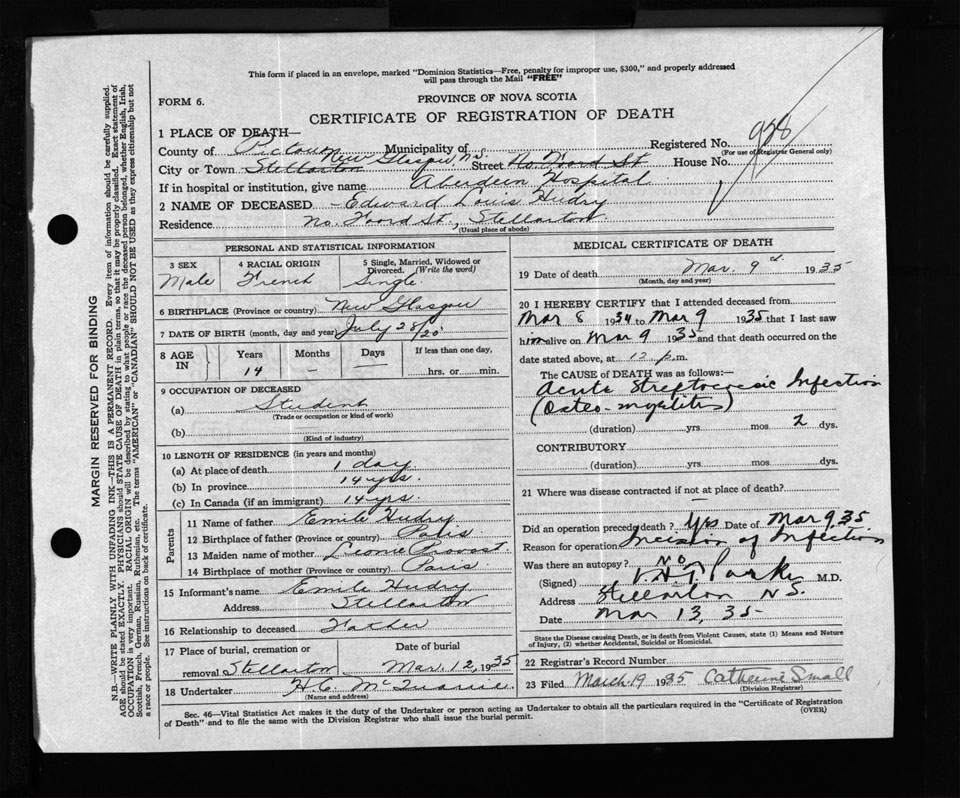 This form if placed in an envelope, marked "Dominion Statistics—Free, penalty for improper use, $300," and properly addressed
will pass through the Mail "FREE"
FORM 6.
PROVINCE OF NOVA SCOTIA
CERTIFICATE OF REGISTRATION OF DEATH
1 PLACE OF DEATH—
Registered No. 928
(For use of Registrar General only)
County of Pictou Municipality of
New Glasgow, N.S.
City or Town Stellarton Street No. Foord St House No.
If in hospital or institution, give name Aberdeen Hospital
2 NAME OF DECEASED Edward Louis Hudry
Residence No. Foord St., Stellarton
(Usual place of abode)
PERSONAL AND STATISTICAL INFORMATION
3 SEX
Male
4 RACIAL ORIGIN
French
5 Single, Married, Widowed or
Divorced. (Write the word)
Single
6 BIRTHPLACE (Province or country) New Glasgow
7 DATE OF BIRTH (month, day and year) July 28/20
8 AGE IN
Years Months Days
14 — —
If less than one day,
hrs. or min.
9 OCCUPATION OF DECEASED
(a) Student
(Trade or occupation or kind of work)
(b)
(Kind of industry)
10 LENGTH OF RESIDENCE (in years and months)
(a) At place of death 1 day
(b) In province 14 yrs.
(c) In Canada (if an immigrant) 14 yrs.
Parents
11 Name of father Emile Hudry
12 Birthplace of father (Province or country) Paris
13 Maiden name of mother Leonie Provost
14 Birthplace of mother (Province or country) Paris
15 Informant's name Emile Hudry
Address Stellarton
16 Relationship to deceased Father
17 Place of burial, cremation or
removal Stellarton
Date of burial
Mar. 12, 1935
18 Undertaker H.C. McQuarrie
(Name and address)
MEDICAL CERTIFICATE OF DEATH
19 Date of death Mar. 9 1935
(Month, day and year)
20 I HEREBY CERTIFY that I attended deceased from
Mar 8 1934 to Mar 9 1935 that I last saw
him alive on Mar 9 1935 and that death occurred on the
date stated above, at 12 p.m.
The CAUSE of DEATH was as follows:—
Acute Streptococcic Infection
(Osteo-myelitis)
(duration) yrs mos 2 dys.
CONTRIBUTORY
(duration) yrs mos. dys.
21 Where was disease contracted if not at place of death?
Did an operation precede death? Yes Date of Mar 9, 35
Reason for operation Incision of Infection
Was there an autopsy? No
(Signed) Parke M.D.
Address Stellarton N.S.
Date Mar 13, 35
State the Disease causing Death, or in death from Violent Causes, state (1) Means and Nature
of Injury, (2) whether Accidental, Suicidal or Homicidal.
22 Registrar's Record Number
23 Filed March 19 1935 Catherine Small
(Division Registrar)
Sec. 46—Vital Statistics Act makes it the duty of the Undertaker or person acting as Undertaker to obtain all the particulars required in the "Certificate of Registration
of Death" and to file the same with the Division Registrar who shall issue the burial permit.
(OVER)
MARGIN RESERVED FOR BINDING
N.B.—WRITE PLAINLY WITH UNFADING INK—THIS IS A PERMANENT RECORD. Every item of information should be carefully supplied.
AGE should be stated EXACTLY. PHYSICIANS should STATE CAUSE OF DEATH in plain terms, so that it may be properly classified. Exact statement of
OCCUPATION is very important. RACIAL ORIGIN will be described by stating to what people or race the deceased person belonged, whether English, Irish,
Scottish, French, German, Russian, Ruthenian, etc. The terms "AMERICAN" or "CANADIAN" SHOULD NOT BE USED as they express citizenship but not
a race or people. See instructions on back of certificate.